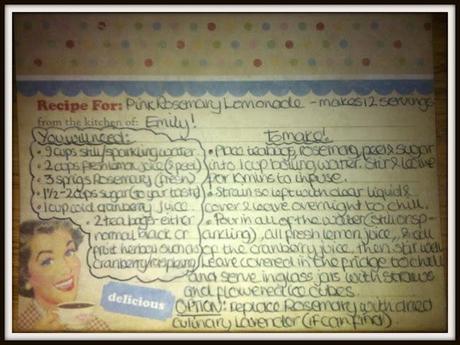 Recipe For: Pink Rosemary Lemonade - makes 12 servings
from the kitchen of: Emily!
You will need:
• 9 cups still/sparkling water
• 2 cups fresh lemon juice (& peel)
• 3 sprigs Rosemary (fresh)
• 1½-2 cups sugar (to your taste)
• 1 cup cold cranberry juice.
• 2 tea bags - either
normal black or
fruit herbal such as
cranberry/raspberry
To make!
• Place teabags, rosemary, peel & sugar
into 1 cup boiling water. Stir & leave
for 10mins to infuse.
• Strain so left with clear liquid &
cover & leave overnight to chill.
• Pour in all of the water (still or sp-
arkling), all fresh lemon juice, & all
of the cranberry juice, then stir well
Leave covered in the fridge to chill
and serve in glass jars with straws
and flowered ice cubes.
OPTION: replace Rosemary with dried
culinary lavender (if can find).
delicious